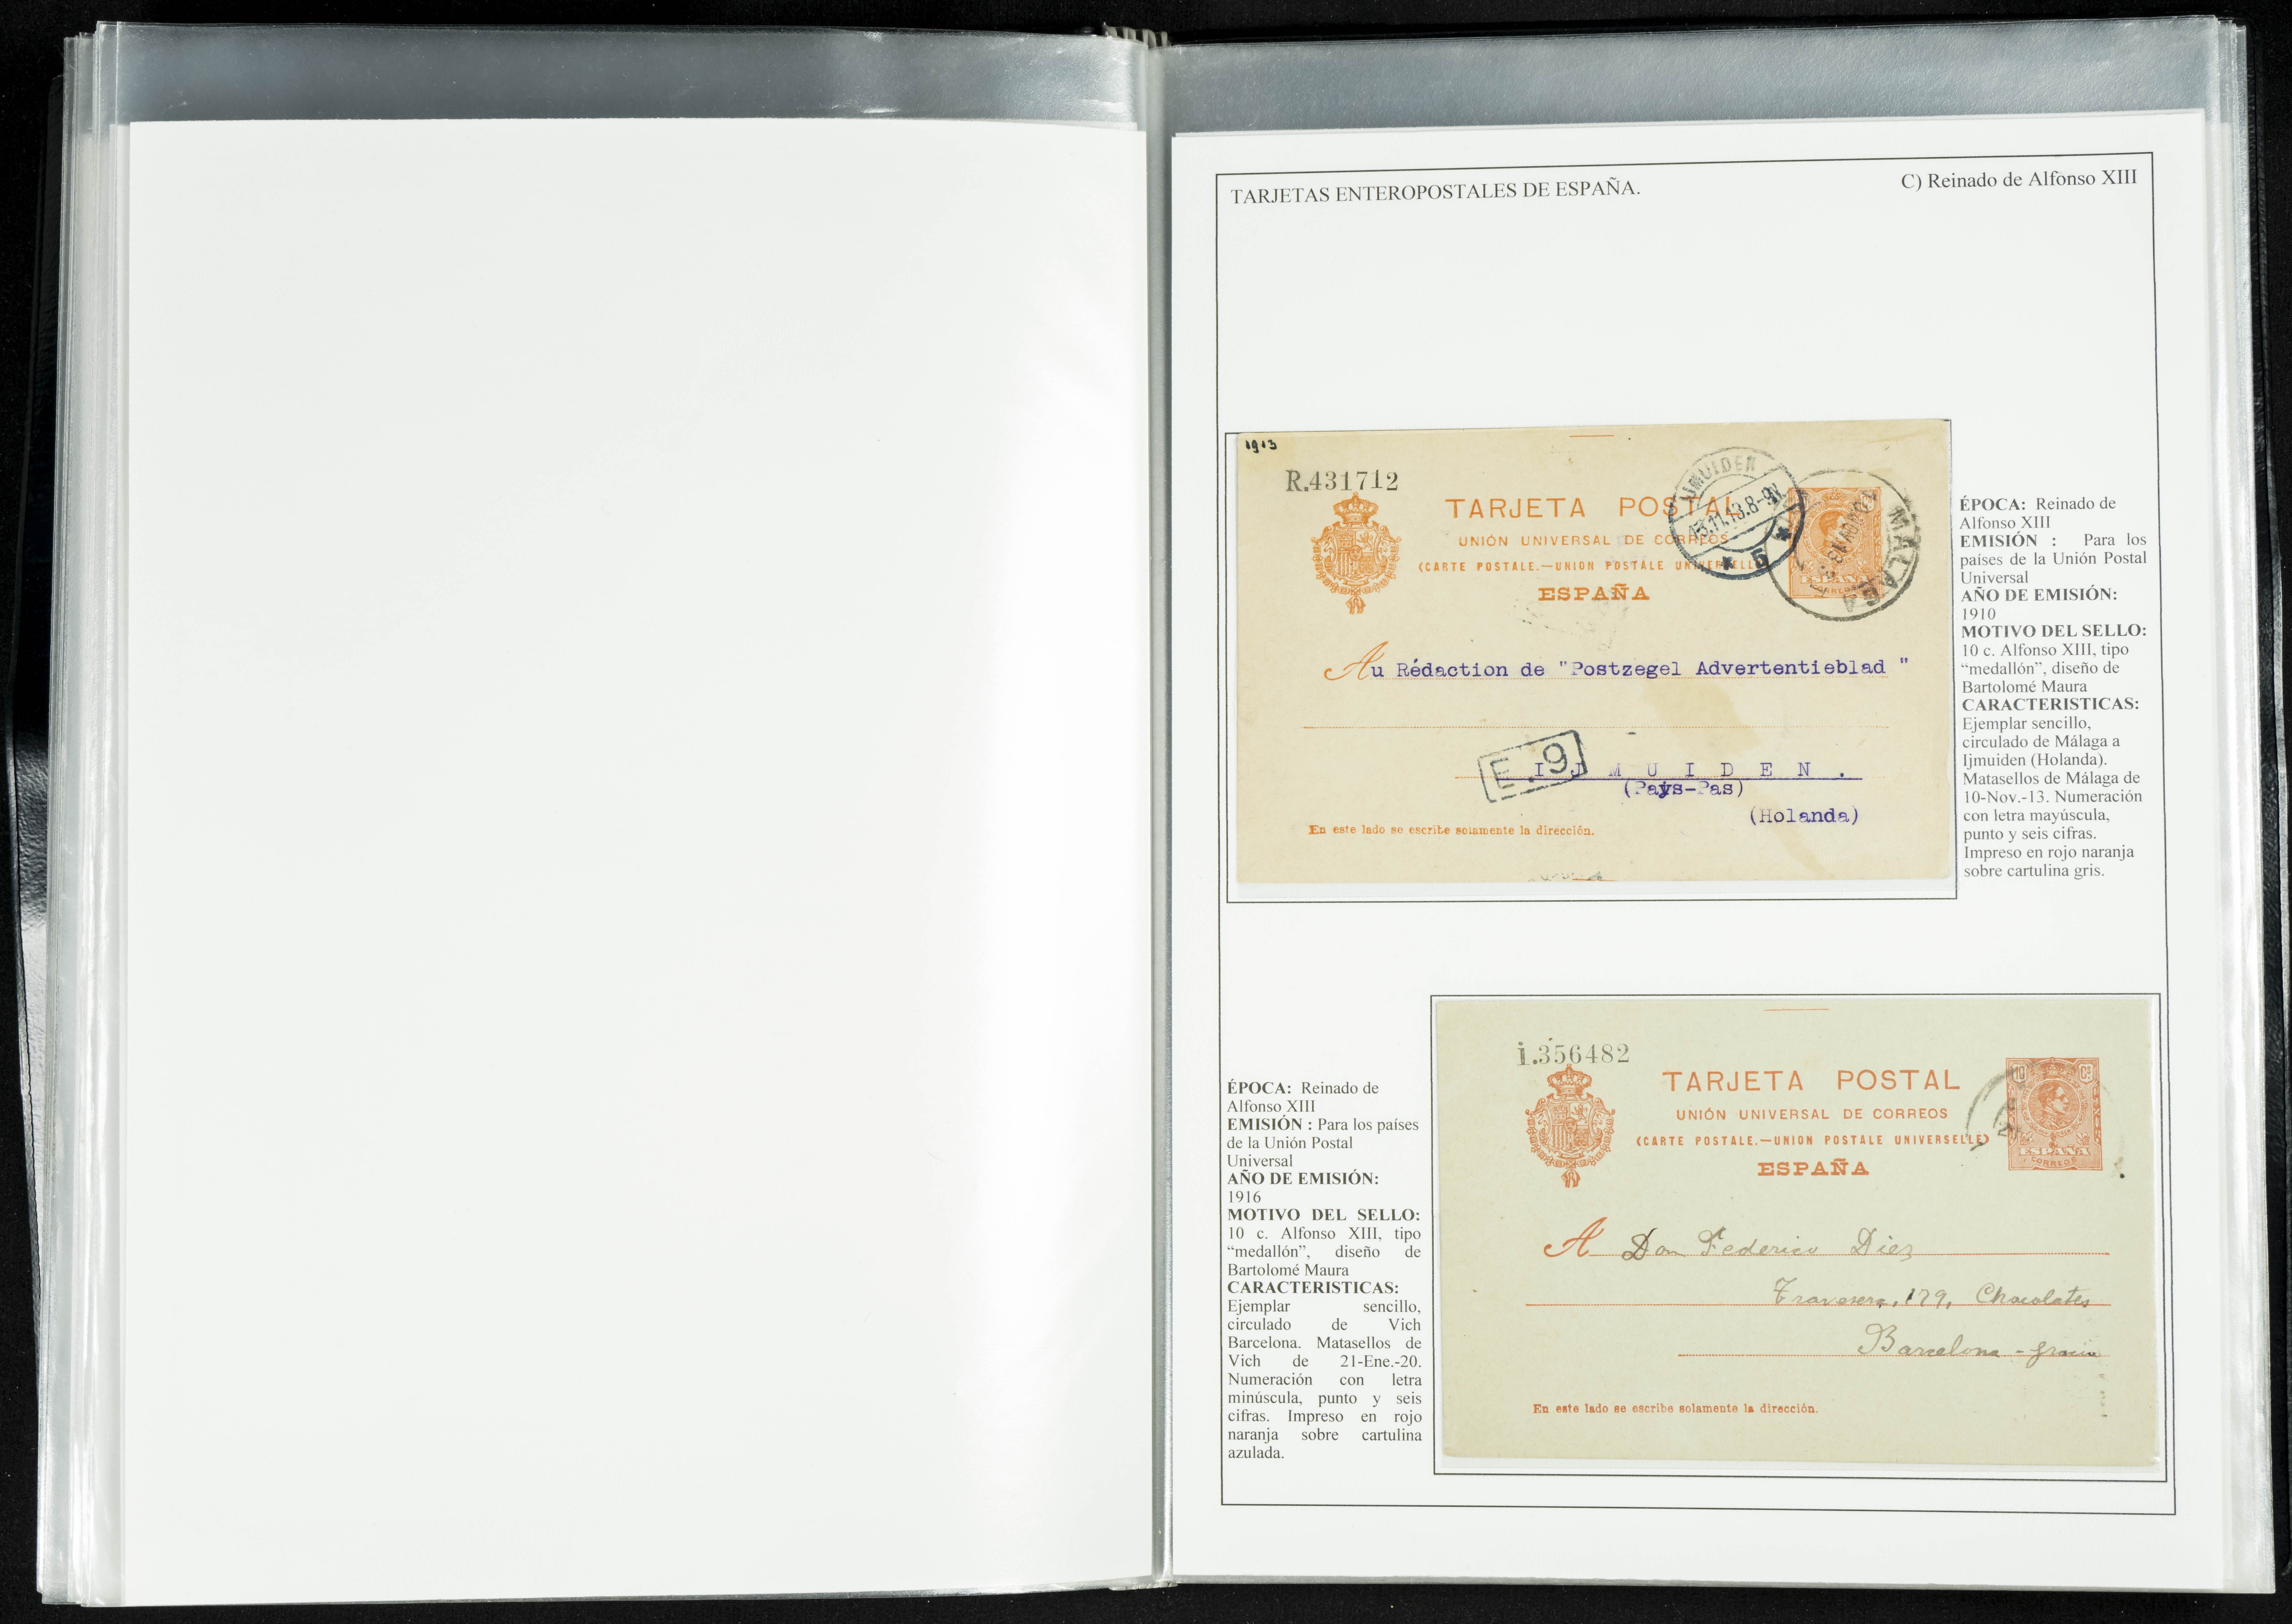 TARJETAS ENTEROPOSTALES DE ESPAÑA.
C) Reinado de Alfonso XIII
1913
R.431712
TARJETA POSTAL
UNIÓN UNIVERSAL DE CORREOS
(CARTE POSTALE.—UNION POSTALE UNIVERSELLE)
ESPAÑA
IJMUIDEN
13.11.13.8-9N.
5
MALAGA
10 NOV 13
ESPAÑA
Au Rédaction de "Postzegel Advertentieblad "
E.9
IJMUIDEN.
(Pays-Pas)
(Holanda)
En este lado se escribe solamente la dirección.
ÉPOCA: Reinado de
Alfonso XIII
EMISIÓN : Para los
países de la Unión Postal
Universal
AÑO DE EMISIÓN:
1910
MOTIVO DEL SELLO:
10 c. Alfonso XIII, tipo
“medallón”, diseño de
Bartolomé Maura
CARACTERISTICAS:
Ejemplar sencillo,
circulado de Málaga a
Ijmuiden (Holanda).
Matasellos de Málaga de
10-Nov.-13. Numeración
con letra mayúscula,
punto y seis cifras.
Impreso en rojo naranja
sobre cartulina gris.
ÉPOCA: Reinado de
Alfonso XIII
EMISIÓN : Para los países
de la Unión Postal
Universal
AÑO DE EMISIÓN:
1916
MOTIVO DEL SELLO:
10 c. Alfonso XIII, tipo
“medallón”, diseño de
Bartolomé Maura
CARACTERISTICAS:
Ejemplar sencillo,
circulado de Vich
Barcelona. Matasellos de
Vich de 21-Ene.-20.
Numeración con letra
minúscula, punto y seis
cifras. Impreso en rojo
naranja sobre cartulina
azulada.
i.356482
TARJETA POSTAL
UNIÓN UNIVERSAL DE CORREOS
(CARTE POSTALE.—UNION POSTALE UNIVERSELLE)
ESPAÑA
10 Cs
ESPAÑA
CORREOS
A Don Federico Diez
Travesera, 179, Chocolates
Barcelona - Gracia
En este lado se escribe solamente la dirección.